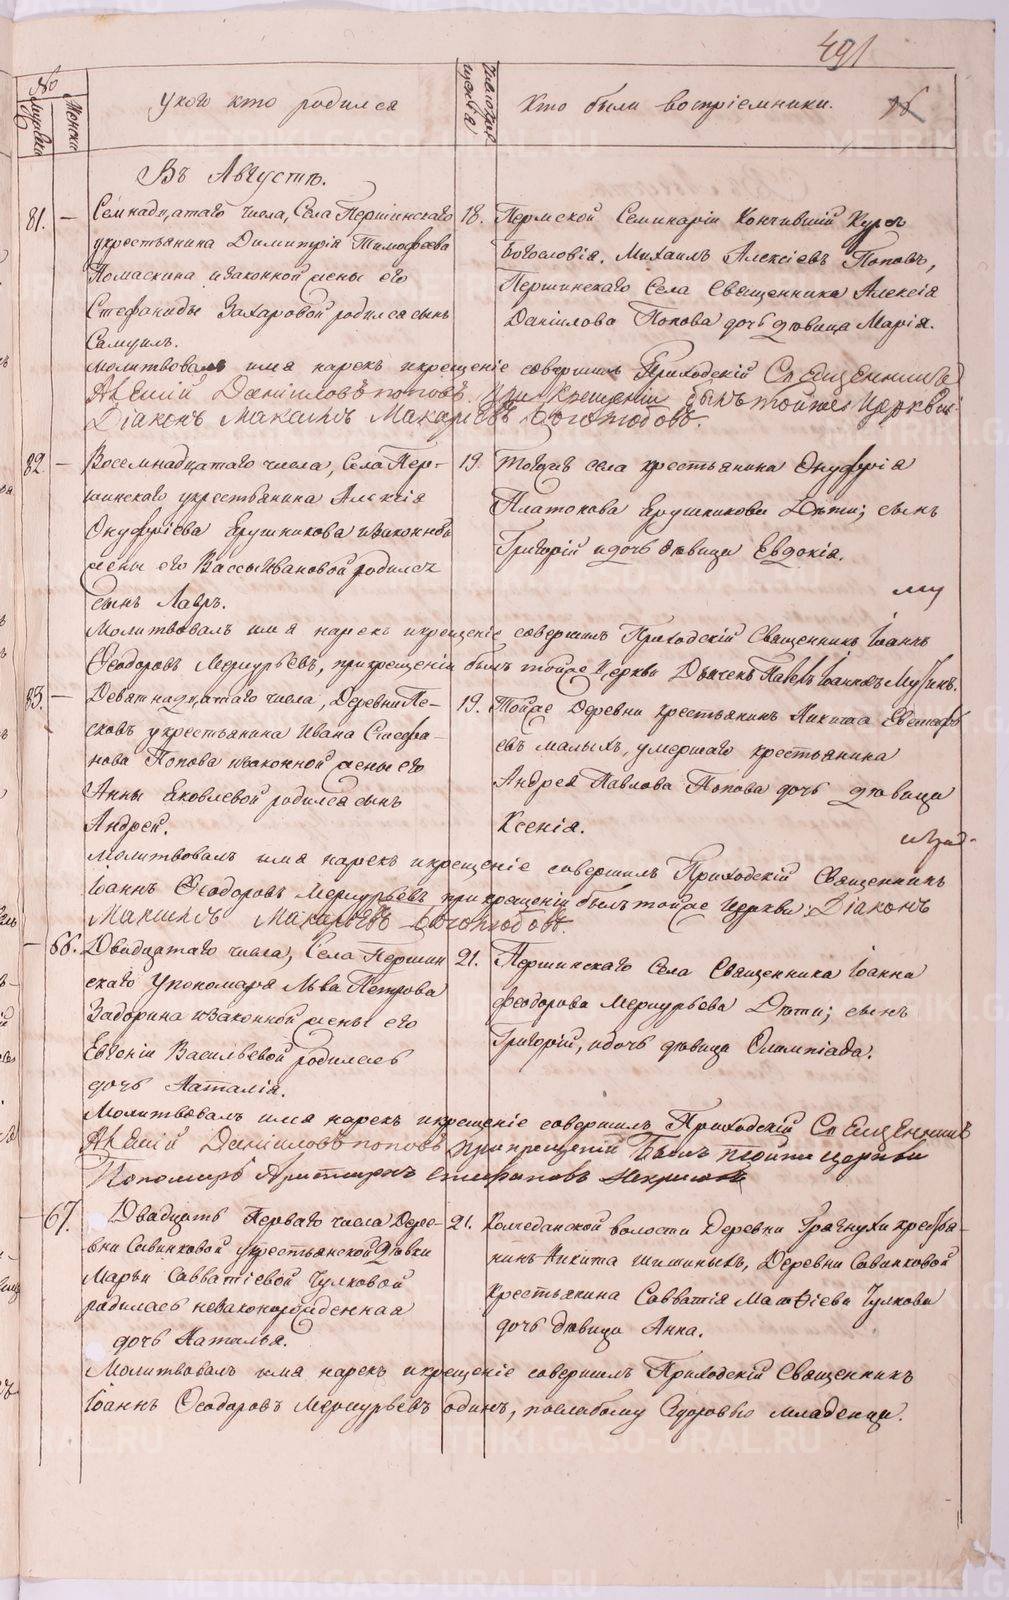 491
№
Мужески
Женски
У кого кто родился
Число
Кто были восприемники.
Въ Августѣ.
81. — Семнадцатаго числа, Села Першинскаго
у крестьянина Димитрія Тимофеева
Помаскина и законной жены его
Стефаниды Захаровой родился сынъ
Самуилъ.
18. Пермской Семинаріи Кончившій Курсъ
Богословія. Михаилъ Алексіевъ Поповъ,
Першинскаго Села Священника Алексія
Даніилова Попова дочь дѣвица Марія.
Молитвовалъ имя нарекъ и крещеніе совершилъ Приходскій Священникъ
Алексій Даніиловъ Поповъ. При Крещеніи былъ тойже Церкви
Діаконъ Максимъ Макаріевъ Боголюбовъ.
82. — Восемнадцатаго числа, Села Пер-
шинскаго у крестьянина Алексія
Онуфріева Ярушникова и законной
жены его Вассы Ивановой родился
сынъ Лавръ.
19. Тогоже села крестьянина Онуфрія
Платонова Ярушникова Дѣти; сынъ
Григорій и дочь дѣвица Евдокія.
Молитвовалъ имя нарекъ и крещеніе совершилъ Приходскій Священникъ Іоаннъ
Ѳеодоровъ Меркурьевъ, при крещеніи былъ тойже Церкви Дьячекъ Павелъ Іоанновъ
83. — Девятнадцатаго числа, Деревни Пе-
сковъ у крестьянина Ивана Стефа-
нова Попова и законной жены его
Анны Яковлевой родился сынъ
Андрей.
19. Тойже Деревни крестьянинъ Никита
евъ малыхъ, умершаго крестьянина
Андрея Павлова Попова дочь дѣвица
Ксенія.
Молитвовалъ имя нарекъ и крещеніе совершилъ Приходскій Священникъ
Іоаннъ Ѳеодоровъ Меркурьевъ при крещеніи былъ тойже Церкви Діаконъ
Максимъ Макаріевъ Боголюбовъ.
— 66. Двадцатаго числа, Села Першин
скаго Упономаря Льва Петрова
Задорина и законной жены его
Евгеніи Васильевой родилась
дочь Наталія.
21. Першинскаго Села Священника Іоанна
Феодорова Меркурьева Дѣти; сынъ
Григорій, и дочь дѣвица Олимпіада.
Молитвовалъ имя нарекъ и крещеніе совершилъ Приходскій Священникъ
Алексій Даніиловъ Поповъ при крещеніи былъ тойже церкви
Пономарь
— 67. Двадцать Перваго числа Дере-
вни Савинковой у крестьянской дѣвки
Марьи Савватіевой Чулковой
родилась незаконорожденная
дочь Наталья.
21. Колчеданской волости Деревни крестья-
нинъ Никита Шишиныхъ, Деревни Савинковой
Крестьянина Савватія Матѳіева Чулкова
дочь дѣвица Анна.
Молитвовалъ имя нарекъ и крещеніе совершилъ Приходскій Священникъ
Іоаннъ Ѳеодоровъ Меркурьевъ одинъ, послабому здоровью младенца.
METRIKI.GASO-URAL.RU